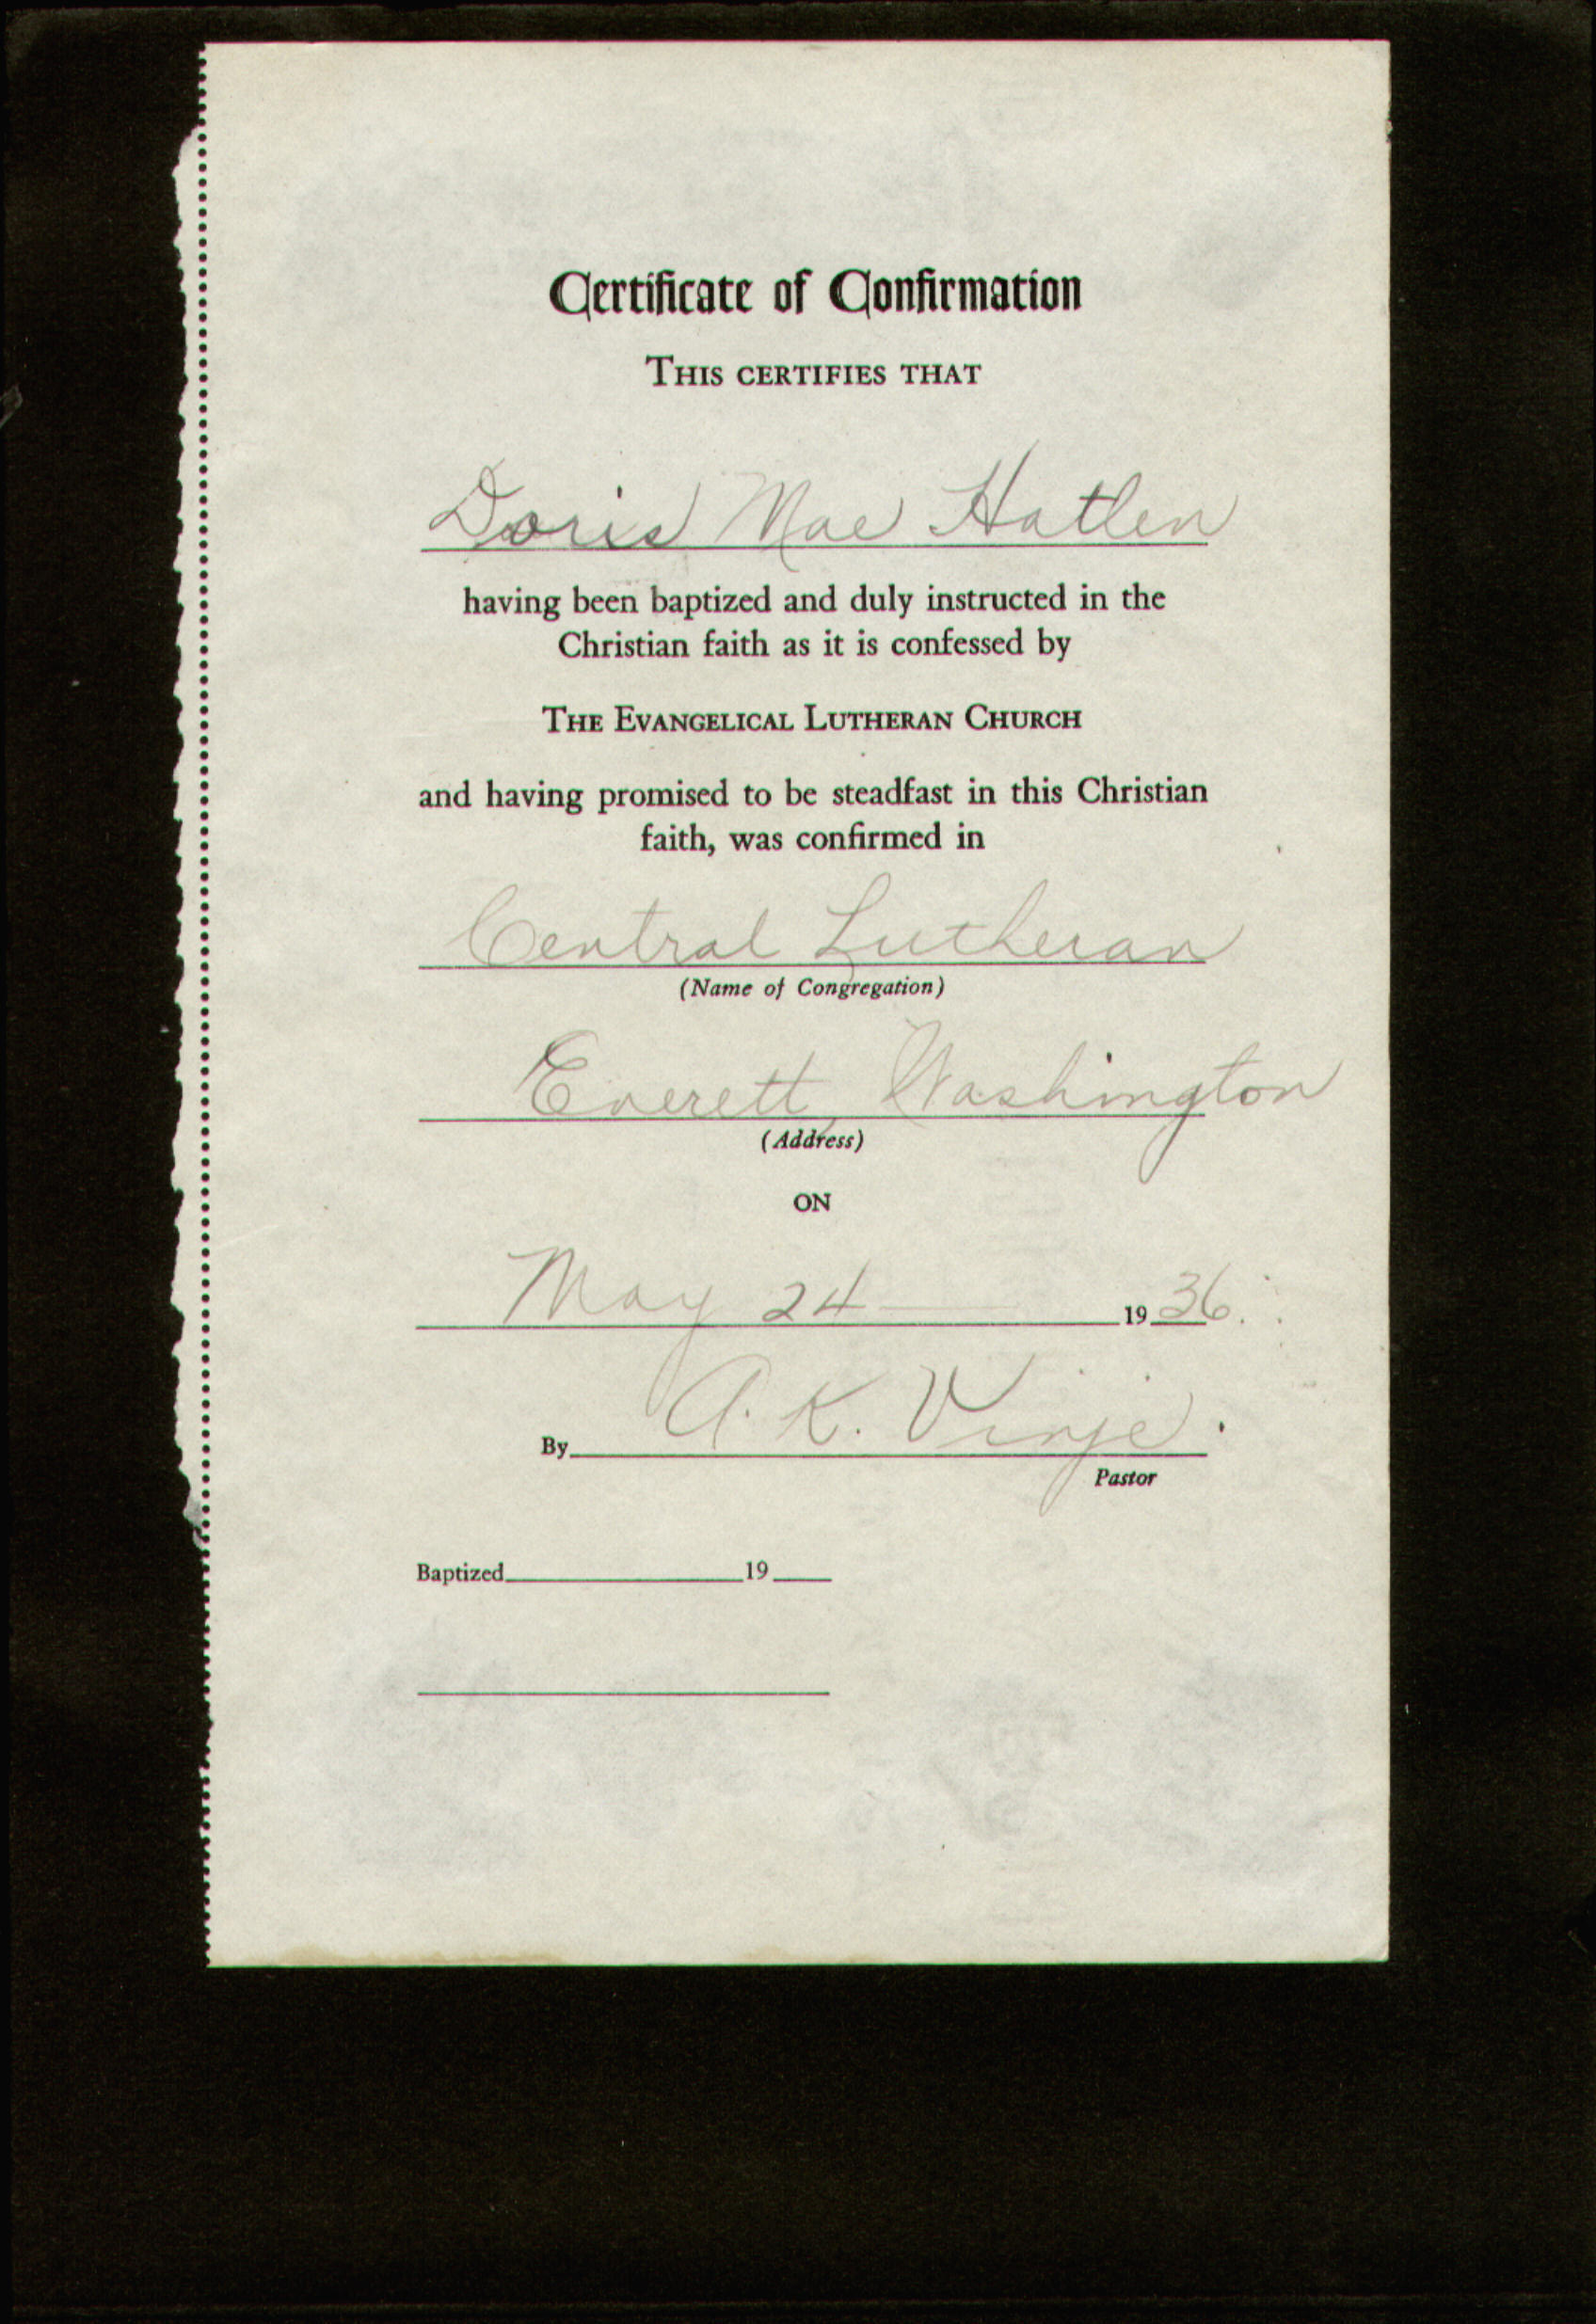 Certificate of Confirmation
THIS CERTIFIES THAT
Doris Mae Hatlen
having been baptized and duly instructed in the
Christian faith as it is confessed by
THE EVANGELICAL LUTHERAN CHURCH
and having promised to be steadfast in this Christian
faith, was confirmed in
Central Lutheran
(Name of Congregation)
Everett, Washington
(Address)
ON
May 24 1936.
By A. K. Vinje.
Pastor
Baptized 19